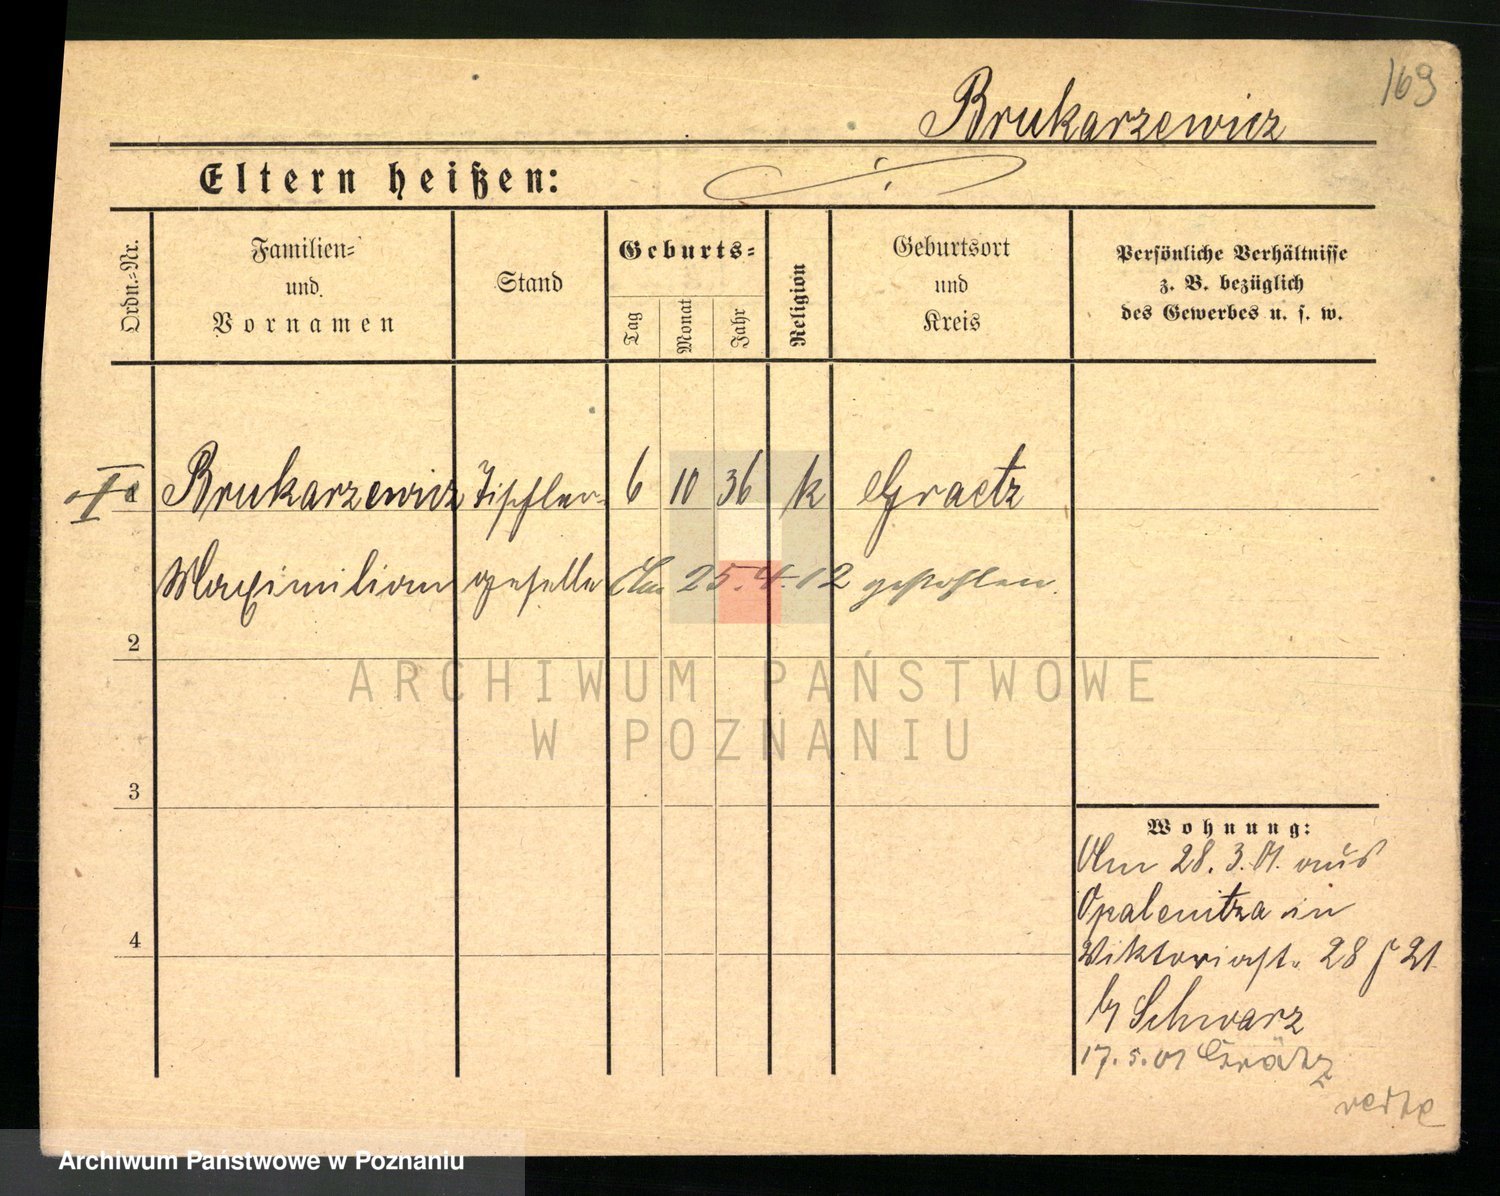 169
Brukarzewicz
Eltern heißen:
Ordn.-Nr.
Familien-
und
Vornamen
Stand
Geburts-
Tag
Monat
Jahr
Religion
Geburtsort
und
Kreis
Persönliche Verhältnisse
z. B. bezüglich
des Gewerbes u. s. w.
Brukarzewicz Tischler- 6 10 36 k Graetz
Maximilian geselle Am 25.4.12 gestohlen.
2
ARCHIWUM PAŃSTWOWE
W POZNANIU
3
Wohnung:
Am 28.3.01. aus
Opalenitza in
4
Viktoriast. 28 21
Schwarz
17.5.01 Grätz
verte
Archiwum Państwowe w Poznaniu